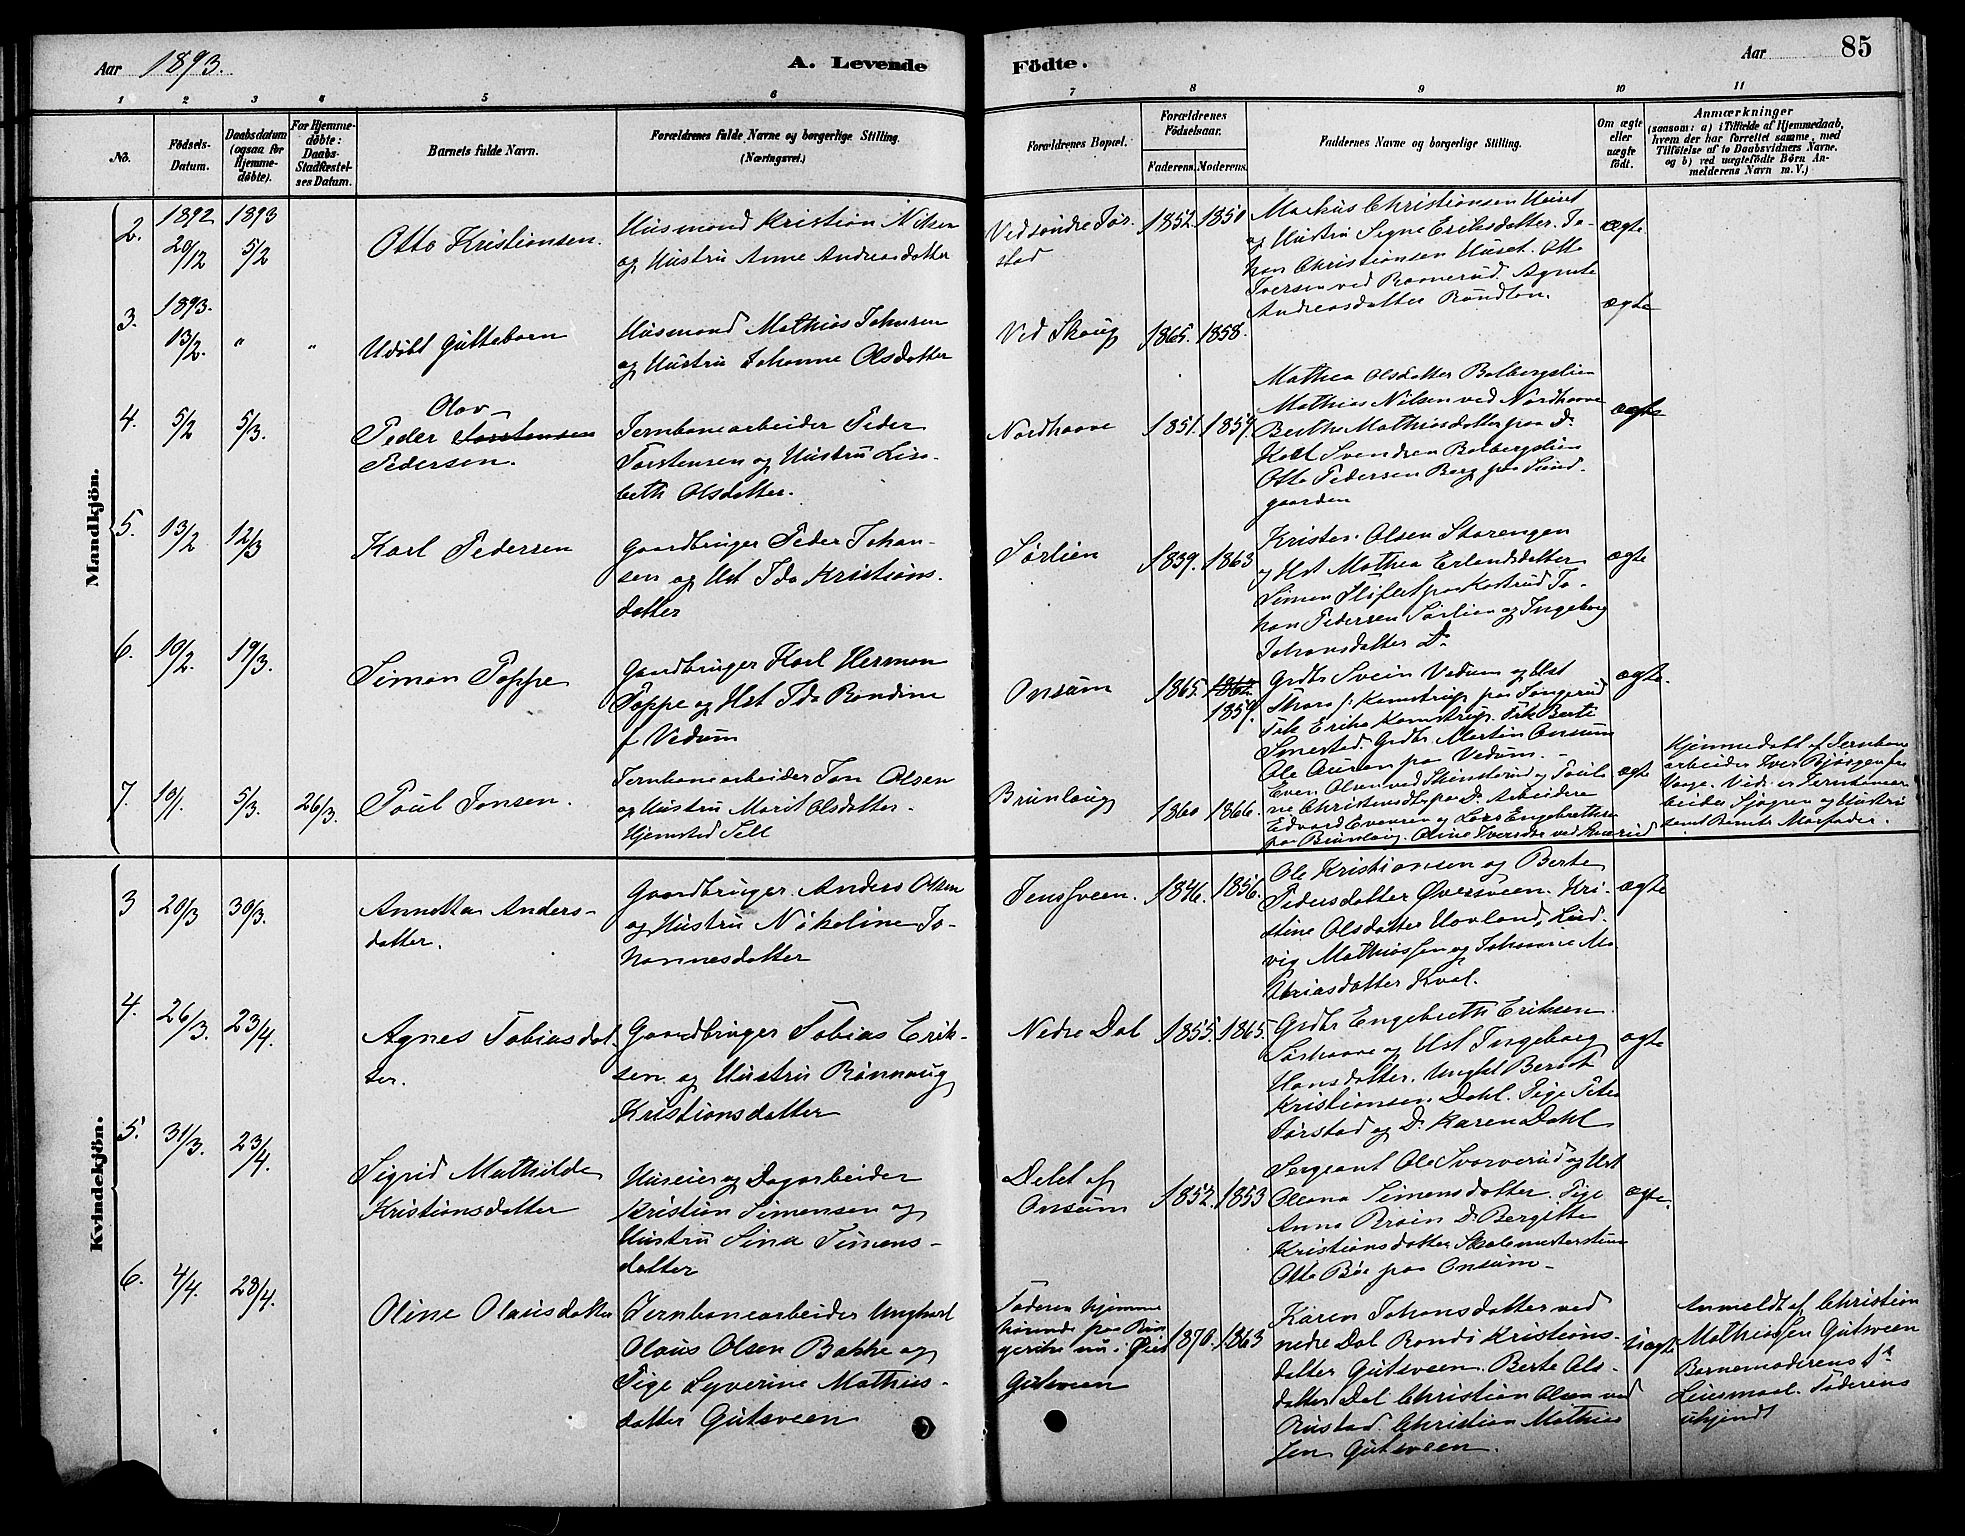 Aar 1893.
A. Levende
Födte.
Aar
85
1 2 3 4 5 6 7 8 9 10 11
No.
Födsels-
Datum.
Daabsdatum
(ogsaa for
Hjemme-
døbte).
For Hjemme-
døbte:
Daabs-
Stadfæstel-
ses Datum.
Barnets fulde Navn.
Forældrenes fulde Navne og borgerlige Stilling.
(Næringsvei.)
Forældrenes Bopæl.
Forældrenes
Födselsaar.
Faderens.
Moderens.
Faddernes Navne og borgerlige Stilling.
Om ægte
eller
uægte
födt.
Anmærkninger
(saasom: a) i Tilfælde af Hjemmedaab,
hvem der har forrettet samme, med
Tilföielse af to Daabsvidners Navne,
og b) ved uægtefödte Börn An-
melderens Navn m. V.)
Mandkjön.
2.
1892
20/12
1893
5/2
Otto Kristiansen.
Husmand Kristian Nilsen
og Hustru Anne Andreasdatter
Ved søndre Tor-
stad
1852. 1850
Markus Christiansen Huset
og Hustru Signe Eriksdatter. Jo-
han Christiansen Huset. Otto
Iversen ved Romerud. Agnete
Andreasdatter
ægte
3.
1893.
13/2.
"
"
Udøbt Guttebarn
Husmand Mathias Johnsen
og Hustru Johanne Olsdatter
Ved Skoug
1865. 1858.
ægte
4.
5/2
5/3.
Olav
Peder Torstensen
Pedersen.
Jernbanearbeider Peder
Torstensen og Hustru Lisa-
beth Olsdatter.
Nordhaave
1851. 1859.
Mathea Olsdatter Bolbergslien
Mathias Nilsen ved Nordhaave
Berthe Mathiasdatter paa Do
Karl Svendsen Bolbergslien
Otto Pedersen Berg paa Sund-
gaarden
ægte
5.
13/2
12/3
Karl Pedersen
Gaardbruger Peder Johan-
sen og Hst Ida Kristians-
datter
Sørlien
1839. 1863
Krister Olsen Storengen
og Hst Mathea Erlandsdatter
Simen
paa Kastrud Jo-
han Pedersen Sørlien og Ingeborg
Johansdatter Do
ægte
6.
10/2.
19/3.
Simon Poppe
Gaardbruger Karl Herman
Poppe og Hst Ida Randine
f Vedum
Onsum
1865. 1862
1859.
Grdbr Svein Vedum og Hst
Thora f. Kamstrup paa Tongerud
Frk Erika Kamstrup. Frk Berte
Smestad. Grdbr Martin Onsum
Ole Auren paa Vedum.
ægte.
7.
10/1.
5/3.
26/3.
Poul Jonsen.
Jernbanearbeider Jon Olsen
og Hustru Marit Olsdatter.
Hjemsted Sell
Brunlaug
1860 1866.
Even Olsen ved Skinsterud og Pauli-
ne Christensdtr paa Do Arbeidere
Edvard Evensen og Lars Engebrethsen
paa Brunlaug. Oline Iversdtr ved
ægte
Hjemmedøbt af Jernbane
arbeider Iver Bjørgen fra
Vaage. Vidner Jernbanear-
beider Sjøgren og Hustru
samt Barnets Morfader.
Kvindekjön.
3
20/3
30/3.
Annetta Anders-
datter.
Gaardbruger Anders Olsen
og Hustru Nikoline Jo-
hannesdatter
Jensveen.
1846. 1856.
Ole Kristiansen og Berte
Pedersdatter Øversveen. Kri-
stine Olsdatter Hovland, Lud-
vig Mathiassen og Johanne Ma
thiasdatter Kval.
ægte
4.
26/3.
23/4.
Agnes Tobiasdat-
ter.
Gaardbruger Tobias Erik-
sen og Hustru Rønnaug
Kristiansdatter
Nedre Dal
1855. 1865.
Grdbr Engebreth Eriksen
Sørhaave og Hst Ingeborg
Hansdatter. Ungkl Bernt
Kristiansen Dahl. Pige Petra
Torstad og Do Karen Dahl
ægte
5.
31/3.
23/4.
Sigrid Mathilde
Kristiansdatter
Huseier og Dagarbeider
Kristian Simensen og
Hustru Sina Simens-
datter
Delet af
Onsum
1852. 1853
Sergeant Ole Svarverud og Hst
Oleana Simensdatter. Pige
Anna Bräin Do Bergitte
Kristiansdatter
Otto Böe paa Onsum.
ægte.
6.
4/4.
28/4.
Oline Olausdatter
Jernbanearbeider Ungkarl
Olaus Olsen Bakke og
Pige Syverine Mathias-
datter Gutsveen
Faderen hjemme
hørende paa Rin
gerike nu i Øier
Gutsveen
1870. 1863
Karen Johansdatter ved
nedre Dal Randi Kristians-
datter Gutsveen. Berte Ols-
datter Dal Christian Olsen ved
Rustad. Christian Mathias
sen Gutsveen.
uægte
Anmeldt af Christian
Mathiassen Gutsveen
Barnemoderens 1ste
Leiermaal. Faderens
ukjendt